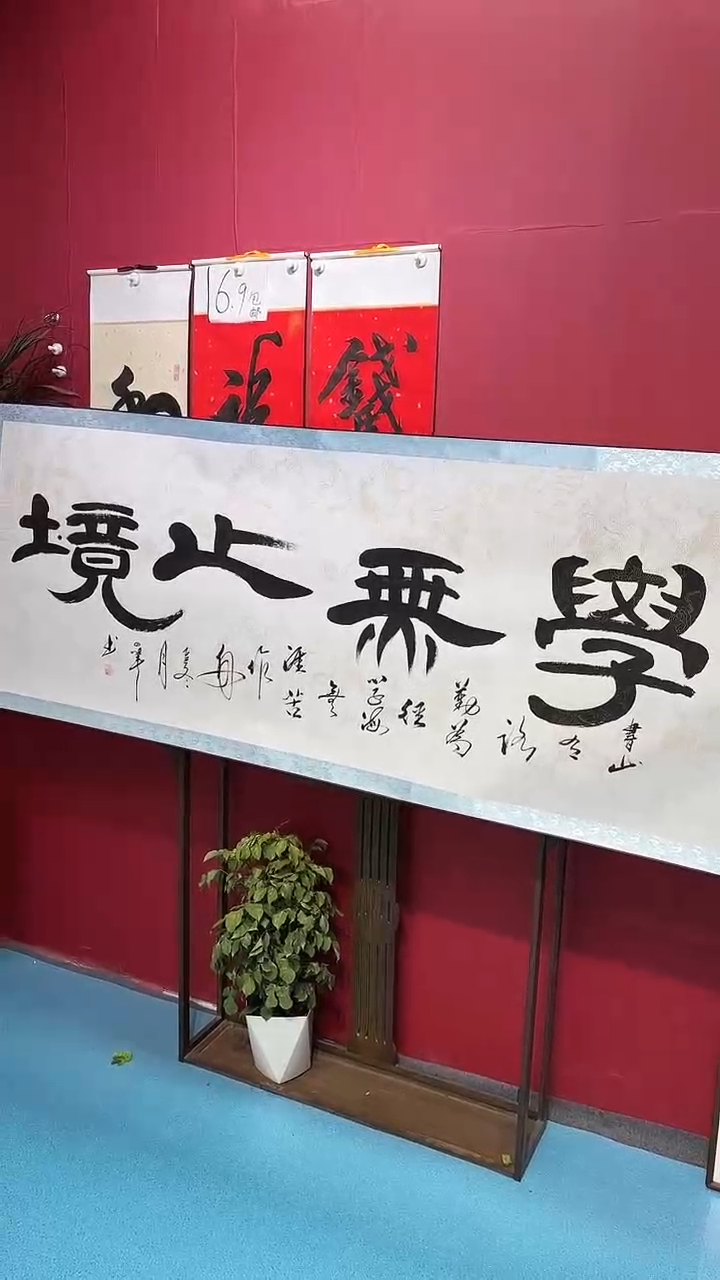 16.9包邮
學無止境
書山有路勤為徑學海無涯苦作舟